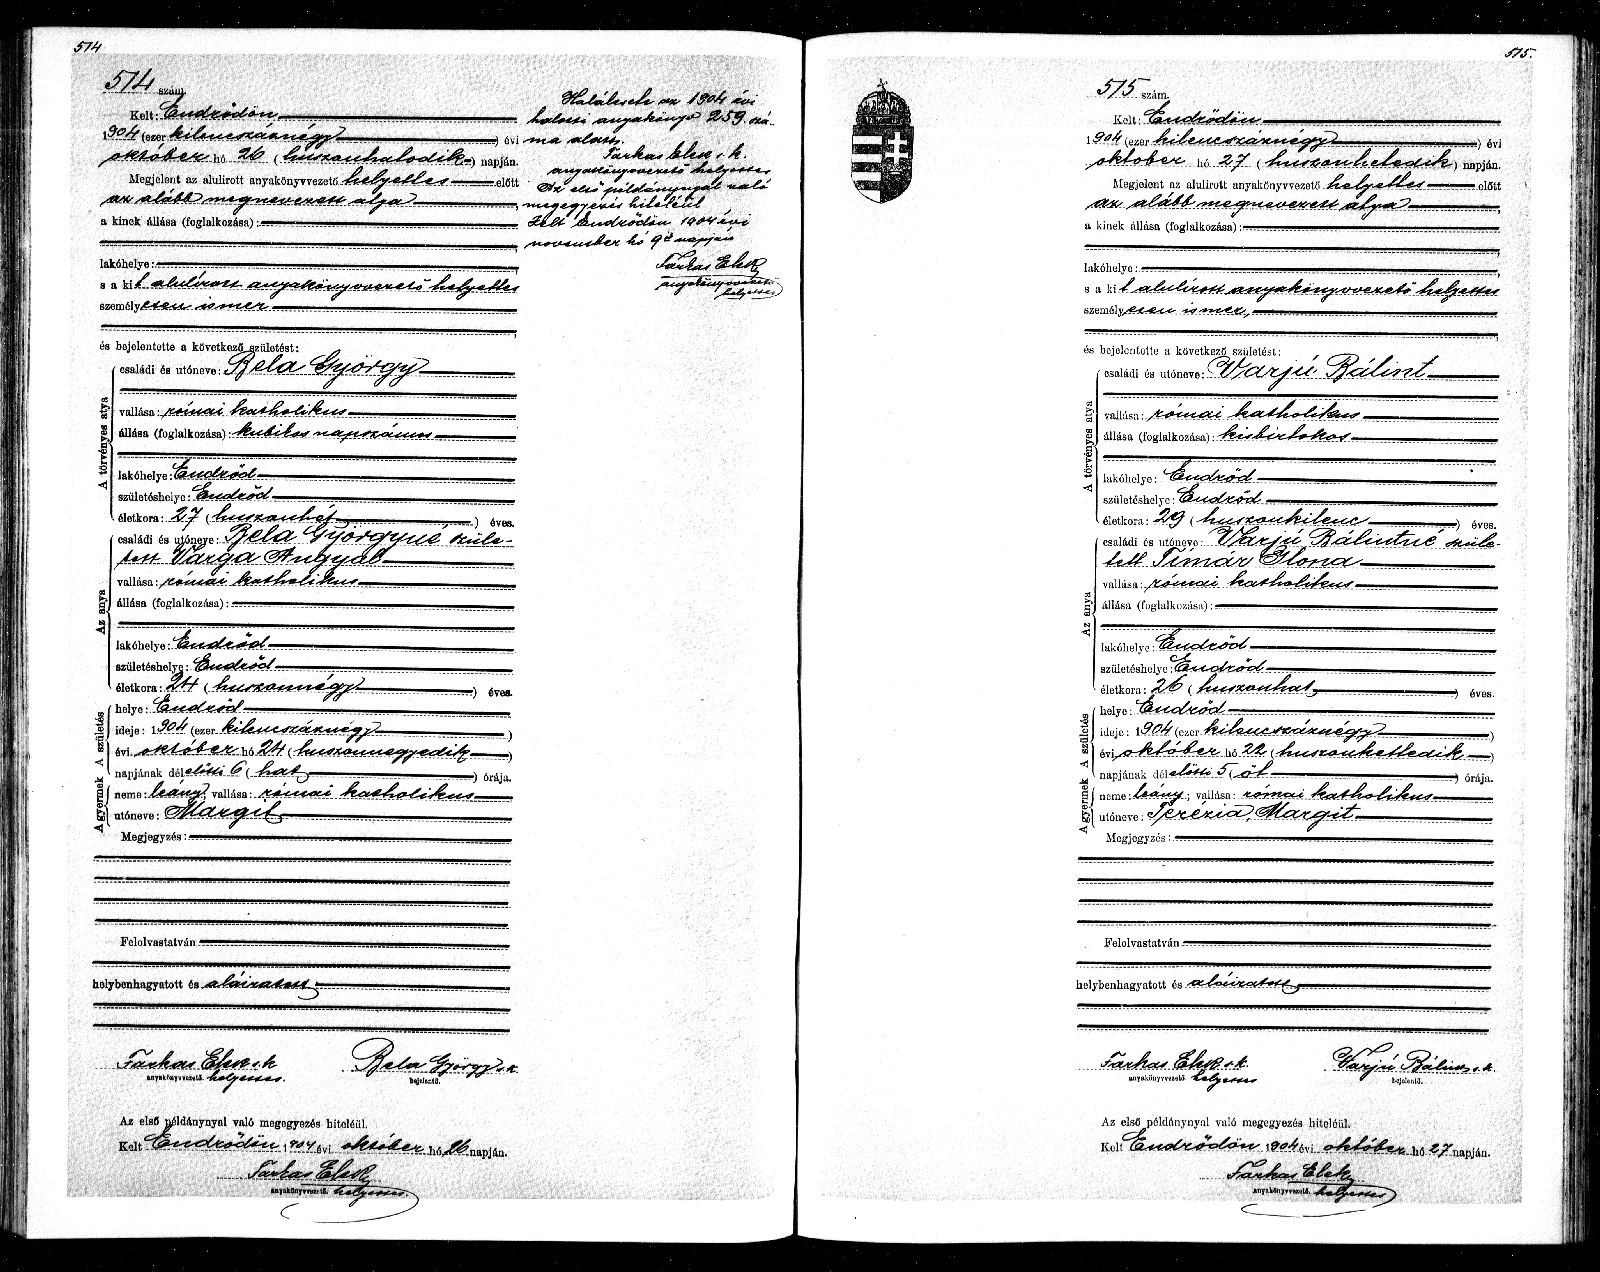 514
514 szám.
Kelt: Endrődön
1904 (ezer kilencszáznégy) évi
október hó 26 (huszonhatodik) napján.
Megjelent az alulirott anyakönyvvezető helyettes előtt
az alább megnevezett atya,
a kinek állása (foglalkozása):
lakóhelye:
s a kit alulírott anyakönyvvezető helyettes
személyesen ismer
és bejelentette a következő születést:
A törvényes atya
családi és utóneve: Bela György
vallása: római katholikus
állása (foglalkozása): kubikos napszámos
lakóhelye: Endrőd
születéshelye: Endrőd
életkora: 27 (huszonhét) éves.
Az anya
családi és utóneve: Bela Györgyné szüle-
tett Varga Angyal
vallása: római katholikus
állása (foglalkozása):
lakóhelye: Endrőd
születéshelye: Endrőd
életkora: 24 (huszonnégy) éves.
A születés
helye: Endrőd
ideje: 1904 (ezer kilencszáznégy)
évi október hó 24 (huszonnegyedik)
napjának délelőtti 6 (hat) órája.
A gyermek
neme: leány; vallása: római katholikus
utóneve: Margit
Megjegyzés:
Felolvastatván
helybenhagyatott és aláiratott
Farkas Elek s.k. Bela György s.k.
anyakönyvvezető helyettes. bejelentő.
Az első példánynyal való megegyezés hiteléül.
Kelt Endrődön 1904 évi október hó 26 napján.
Farkas Elek
anyakönyvvezető. helyettes
Halálesete az 1904 évi
halotti anyakönyv 259. szá-
ma alatt.
Farkas Elek s.k.
anyakönyvvezető helyettes
Az első példánynyal való
megegyezés hiteléül
Kelt Endrődön 1904 évi
november hó 9én napján
Farkas Elek
anyakönyvvezető
helyettes
515.
515 szám.
Kelt: Endrődön
1904 (ezer kilencszáznégy) évi
október hó 27 (huszonhetedik) napján.
Megjelent az alulirott anyakönyvvezető helyettes előtt
az alább megnevezett atya,
a kinek állása (foglalkozása):
lakóhelye:
s a kit alulírott anyakönyvvezető helyettes
személyesen ismer,
és bejelentette a következő születést:
A törvényes atya
családi és utóneve: Varjú Bálint
vallása: római katholikus
állása (foglalkozása): kisbirtokos
lakóhelye: Endrőd
születéshelye: Endrőd
életkora: 29 (huszonkilenc) éves.
Az anya
családi és utóneve: Varjú Bálintné szüle-
tett Tímár Ilona
vallása: római katholikus
állása (foglalkozása):
lakóhelye: Endrőd
születéshelye: Endrőd
életkora: 26 (huszonhat) éves.
A születés
helye: Endrőd
ideje: 1904 (ezer kilencszáznégy)
évi október hó 22 (huszonkettedik)
napjának délelőtti 5 (öt) órája.
A gyermek
neme: leány; vallása: római katholikus
utóneve: Terézia, Margit
Megjegyzés:
Felolvastatván
helybenhagyatott és aláiratott
Farkas Elek s.k. Varjú Bálint s.k.
anyakönyvvezető helyettes bejelentő.
Az első példánynyal való megegyezés hiteléül.
Kelt Endrődön 1904 évi október hó 27 napján.
Farkas Elek
anyakönyvvezető. helyettes